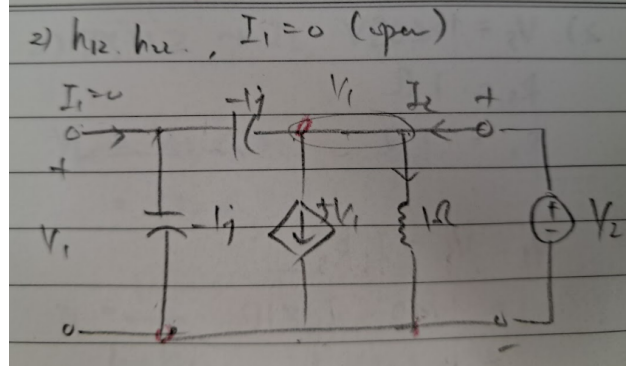 2) h12. h22. , I1=0 (open)
I1=0 -1j V1 I2 +
+
V1 -1j +V1 1Ω + - V2
-